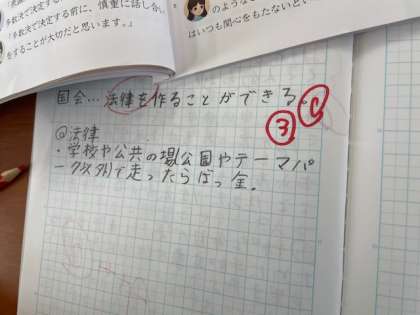 多数決で決定する前に、慎重に話し合い
をすることが大切だと思います。」
のような
はいつも関心をもたないとい
国会…法律を作ることができる。
③
@法律
・学校や公共の場公園やテーマパ
ーク以外で走ったらばっ金。